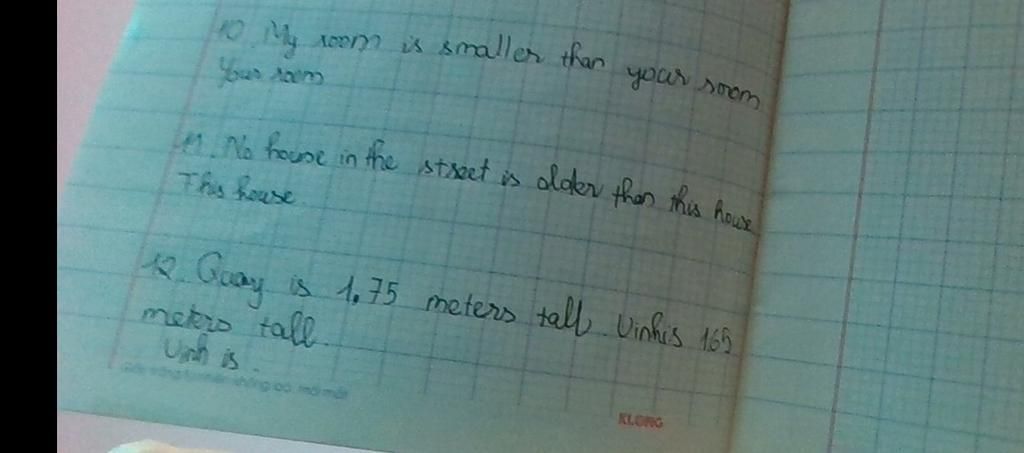 10. My room is smaller than your room
Your room
11. No house in the street is older than this house
This house
12. Quay is 1,75 meters tall, Vinh is 165
meters tall.
Vinh is.
KLONG